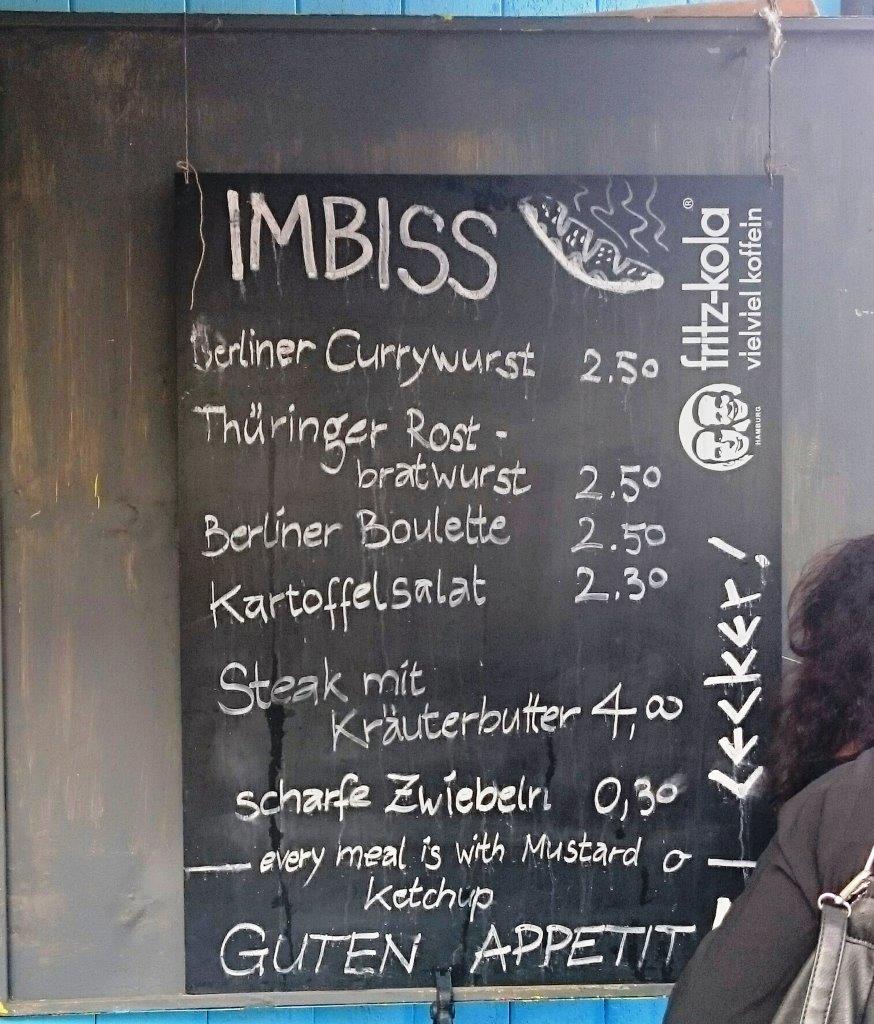 IMBISS
Berliner Currywurst 2.50
Thüringer Rost-
bratwurst 2.50
Berliner Boulette 2.50
Kartoffelsalat 2.30
Steak mit
Kräuterbutter 4,00
scharfe Zwiebeln 0,30
every meal is with Mustard o
Ketchup
GUTEN APPETIT !
fritz-kola®
vielviel koffein
HAMBURG
lecker!